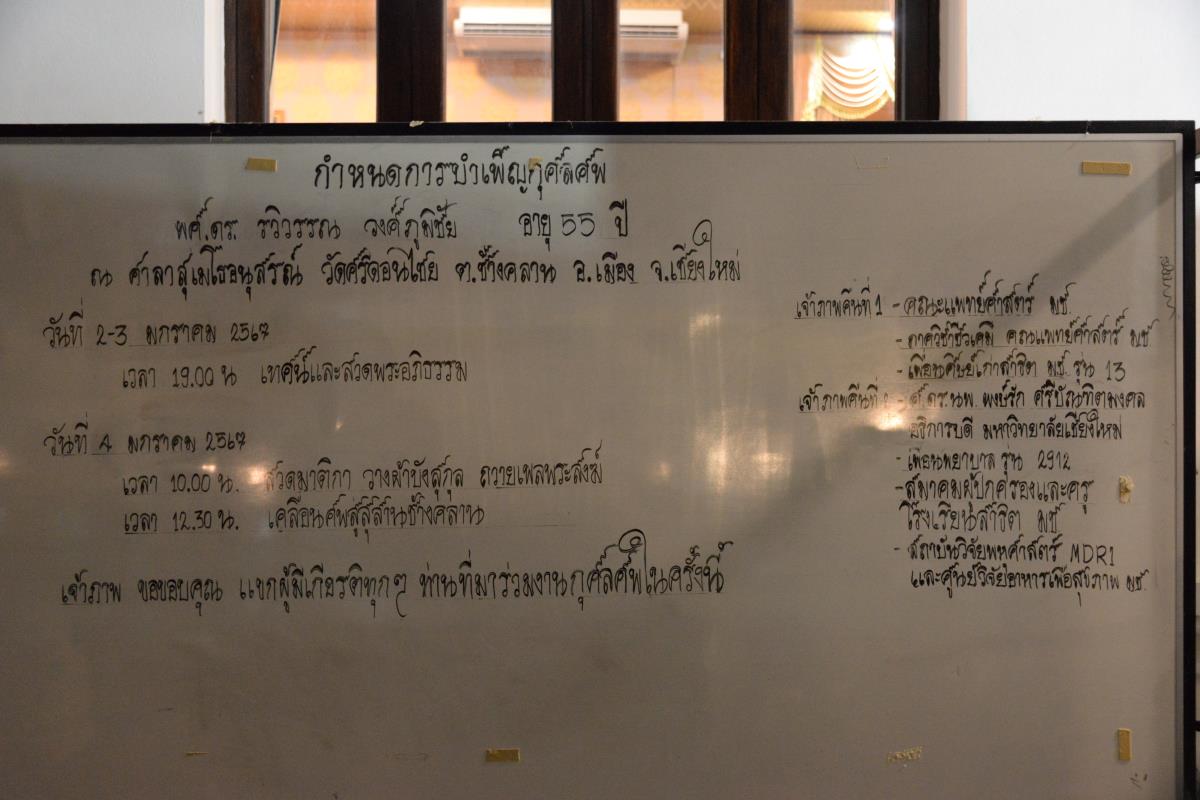 กำหนดการบำเพ็ญกุศลศพ
ผศ.ดร. รวิวรรณ วงศ์ภูมิชัย อายุ 55 ปี
ณ ศาลาสุเมโธอนุสรณ์ วัดศรีดอนไชย ต.ช้างคลาน อ.เมือง จ.เชียงใหม่
วันที่ 2-3 มกราคม 2567
เวลา 19.00 น เทศน์และสวดพระอภิธรรม
วันที่ 4 มกราคม 2567
เวลา 10.00 น. สวดมาติกา วางผ้าบังสุกุล ถวายเพลพระสงฆ์
เวลา 12.30 น. เคลื่อนศพสู่สุสานช้างคลาน
เจ้าภาพ ขอขอบคุณ แขกผู้มีเกียรติทุกๆ ท่านที่มาร่วมงานกุศลศพในครั้งนี้
เจ้าภาพคืนที่ 1 - คณะแพทย์ศาสตร์ มช.
- ภาควิชาชีวเคมี คณะแพทย์ศาสตร์ มช
- เพื่อนศิษย์เก่าสาธิต มช. รุ่น 13
เจ้าภาพคืนที่ - ศ.ดร.นพ. พงษ์รักษ์ ศรีบัณฑิตมงคล
อธิการบดี มหาวิทยาลัยเชียงใหม่
- เพื่อนพยาบาล รุ่น 2912
- สมาคมผู้ปกครองและครู
โรงเรียนสาธิต มช
- สถาบันวิจัยพหุศาสตร์ MDR1
และศูนย์วิจัยอาหารเพื่อสุขภาพ มช.